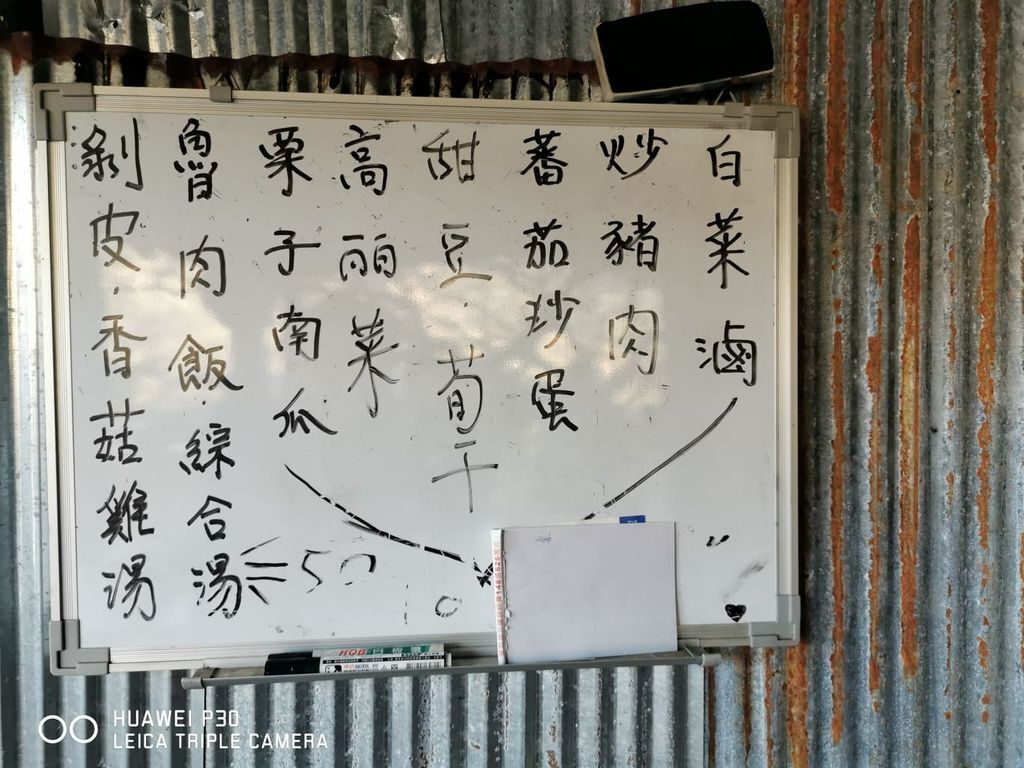 白菜滷
炒豬肉
蕃茄炒蛋
甜豆.荀干
高丽菜
栗子南瓜
魯肉飯.綜合湯=50
剝皮.香菇雞湯
HUAWEI P30
LEICA TRIPLE CAMERA